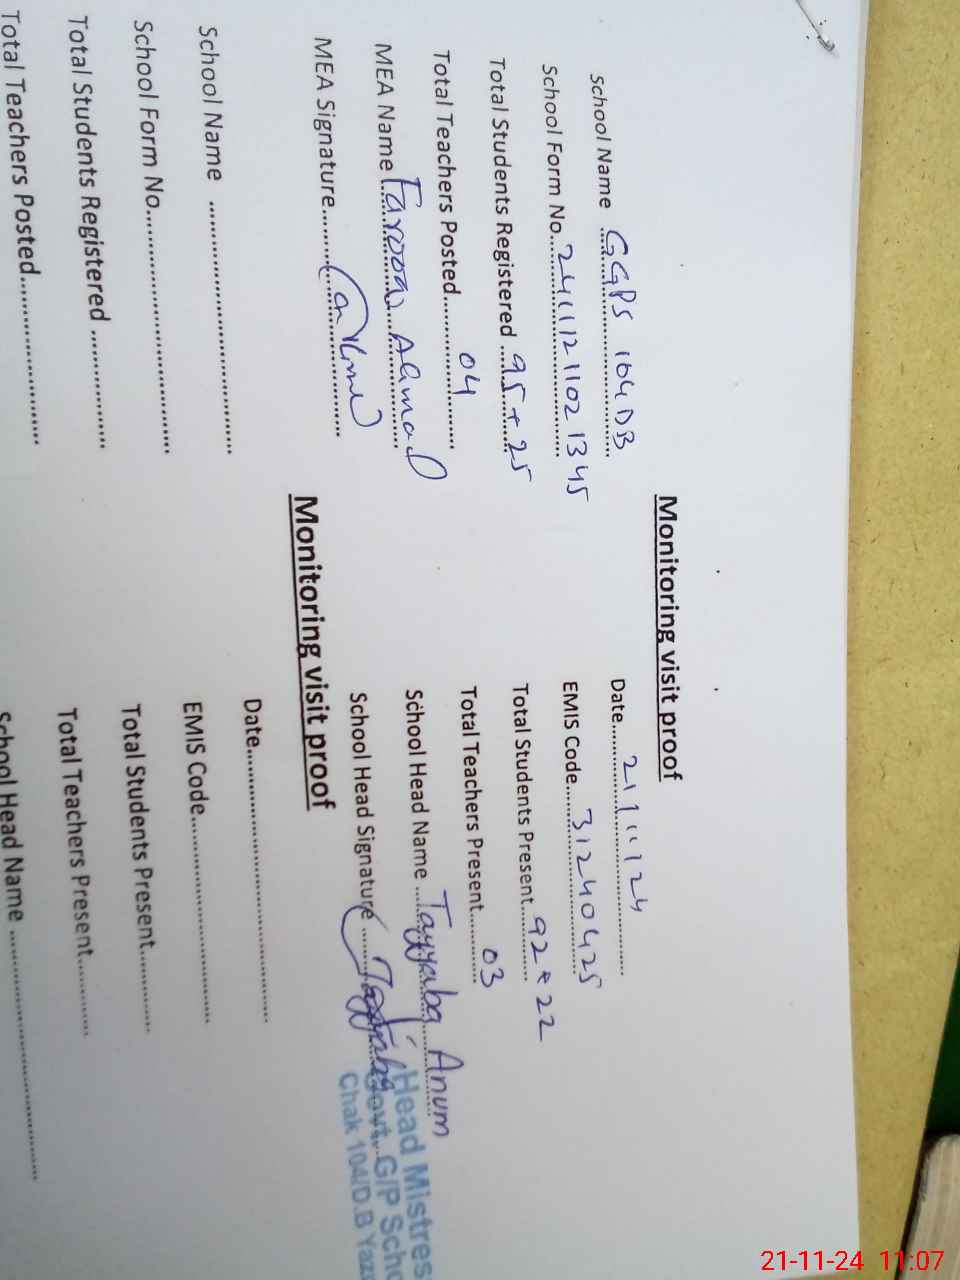 Monitoring visit proof
School Name GGPS 104 DB
Date 21/11/24
School Form No. 2411121102 1345
EMIS Code 31240425
Total Students Registered 95 + 25
Total Students Present 92 + 22
Total Teachers Posted 04
Total Teachers Present 03
MEA Name Farooq Ahmad
School Head Name Tayyaba Anum
MEA Signature
School Head Signature Tayyaba
Head Mistres
Govt. G/P Scho
Chak 104/D.B Yaz
Monitoring visit proof
School Name
Date
School Form No.
EMIS Code
Total Students Registered
Total Students Present
Total Teachers Posted
Total Teachers Present
School Head Name
21-11-24 11:07